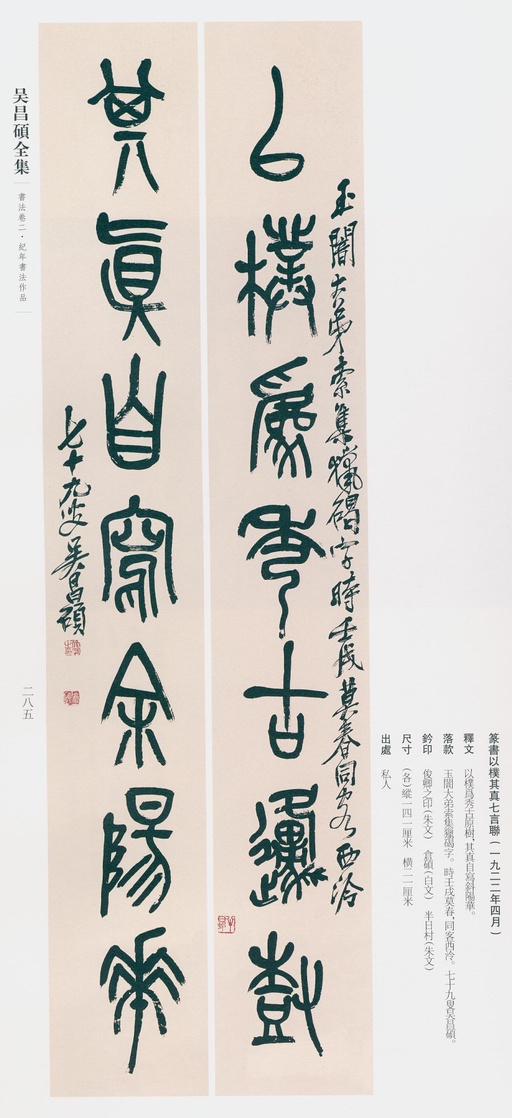 篆書以樸其真七言聯（一九二二年四月）
釋文　以樸爲秀古原樹，其真自寫斜陽華。
落款　玉闇大弟索集獵碣字。時壬戌莫春，同客西泠。七十九叟吳昌碩。
鈐印　俊卿之印（朱文）　倉碩（白文）　半日村（朱文）
尺寸　（各）縱一四一厘米　橫二二厘米
出處　私人
玉闇大弟索集獵碣字時壬戌莫春同客西泠
以樸爲秀古邍樹
其真自寫余陽華
七十九叟吳昌碩
吴昌碩全集
書法卷二·紀年書法作品
二八五